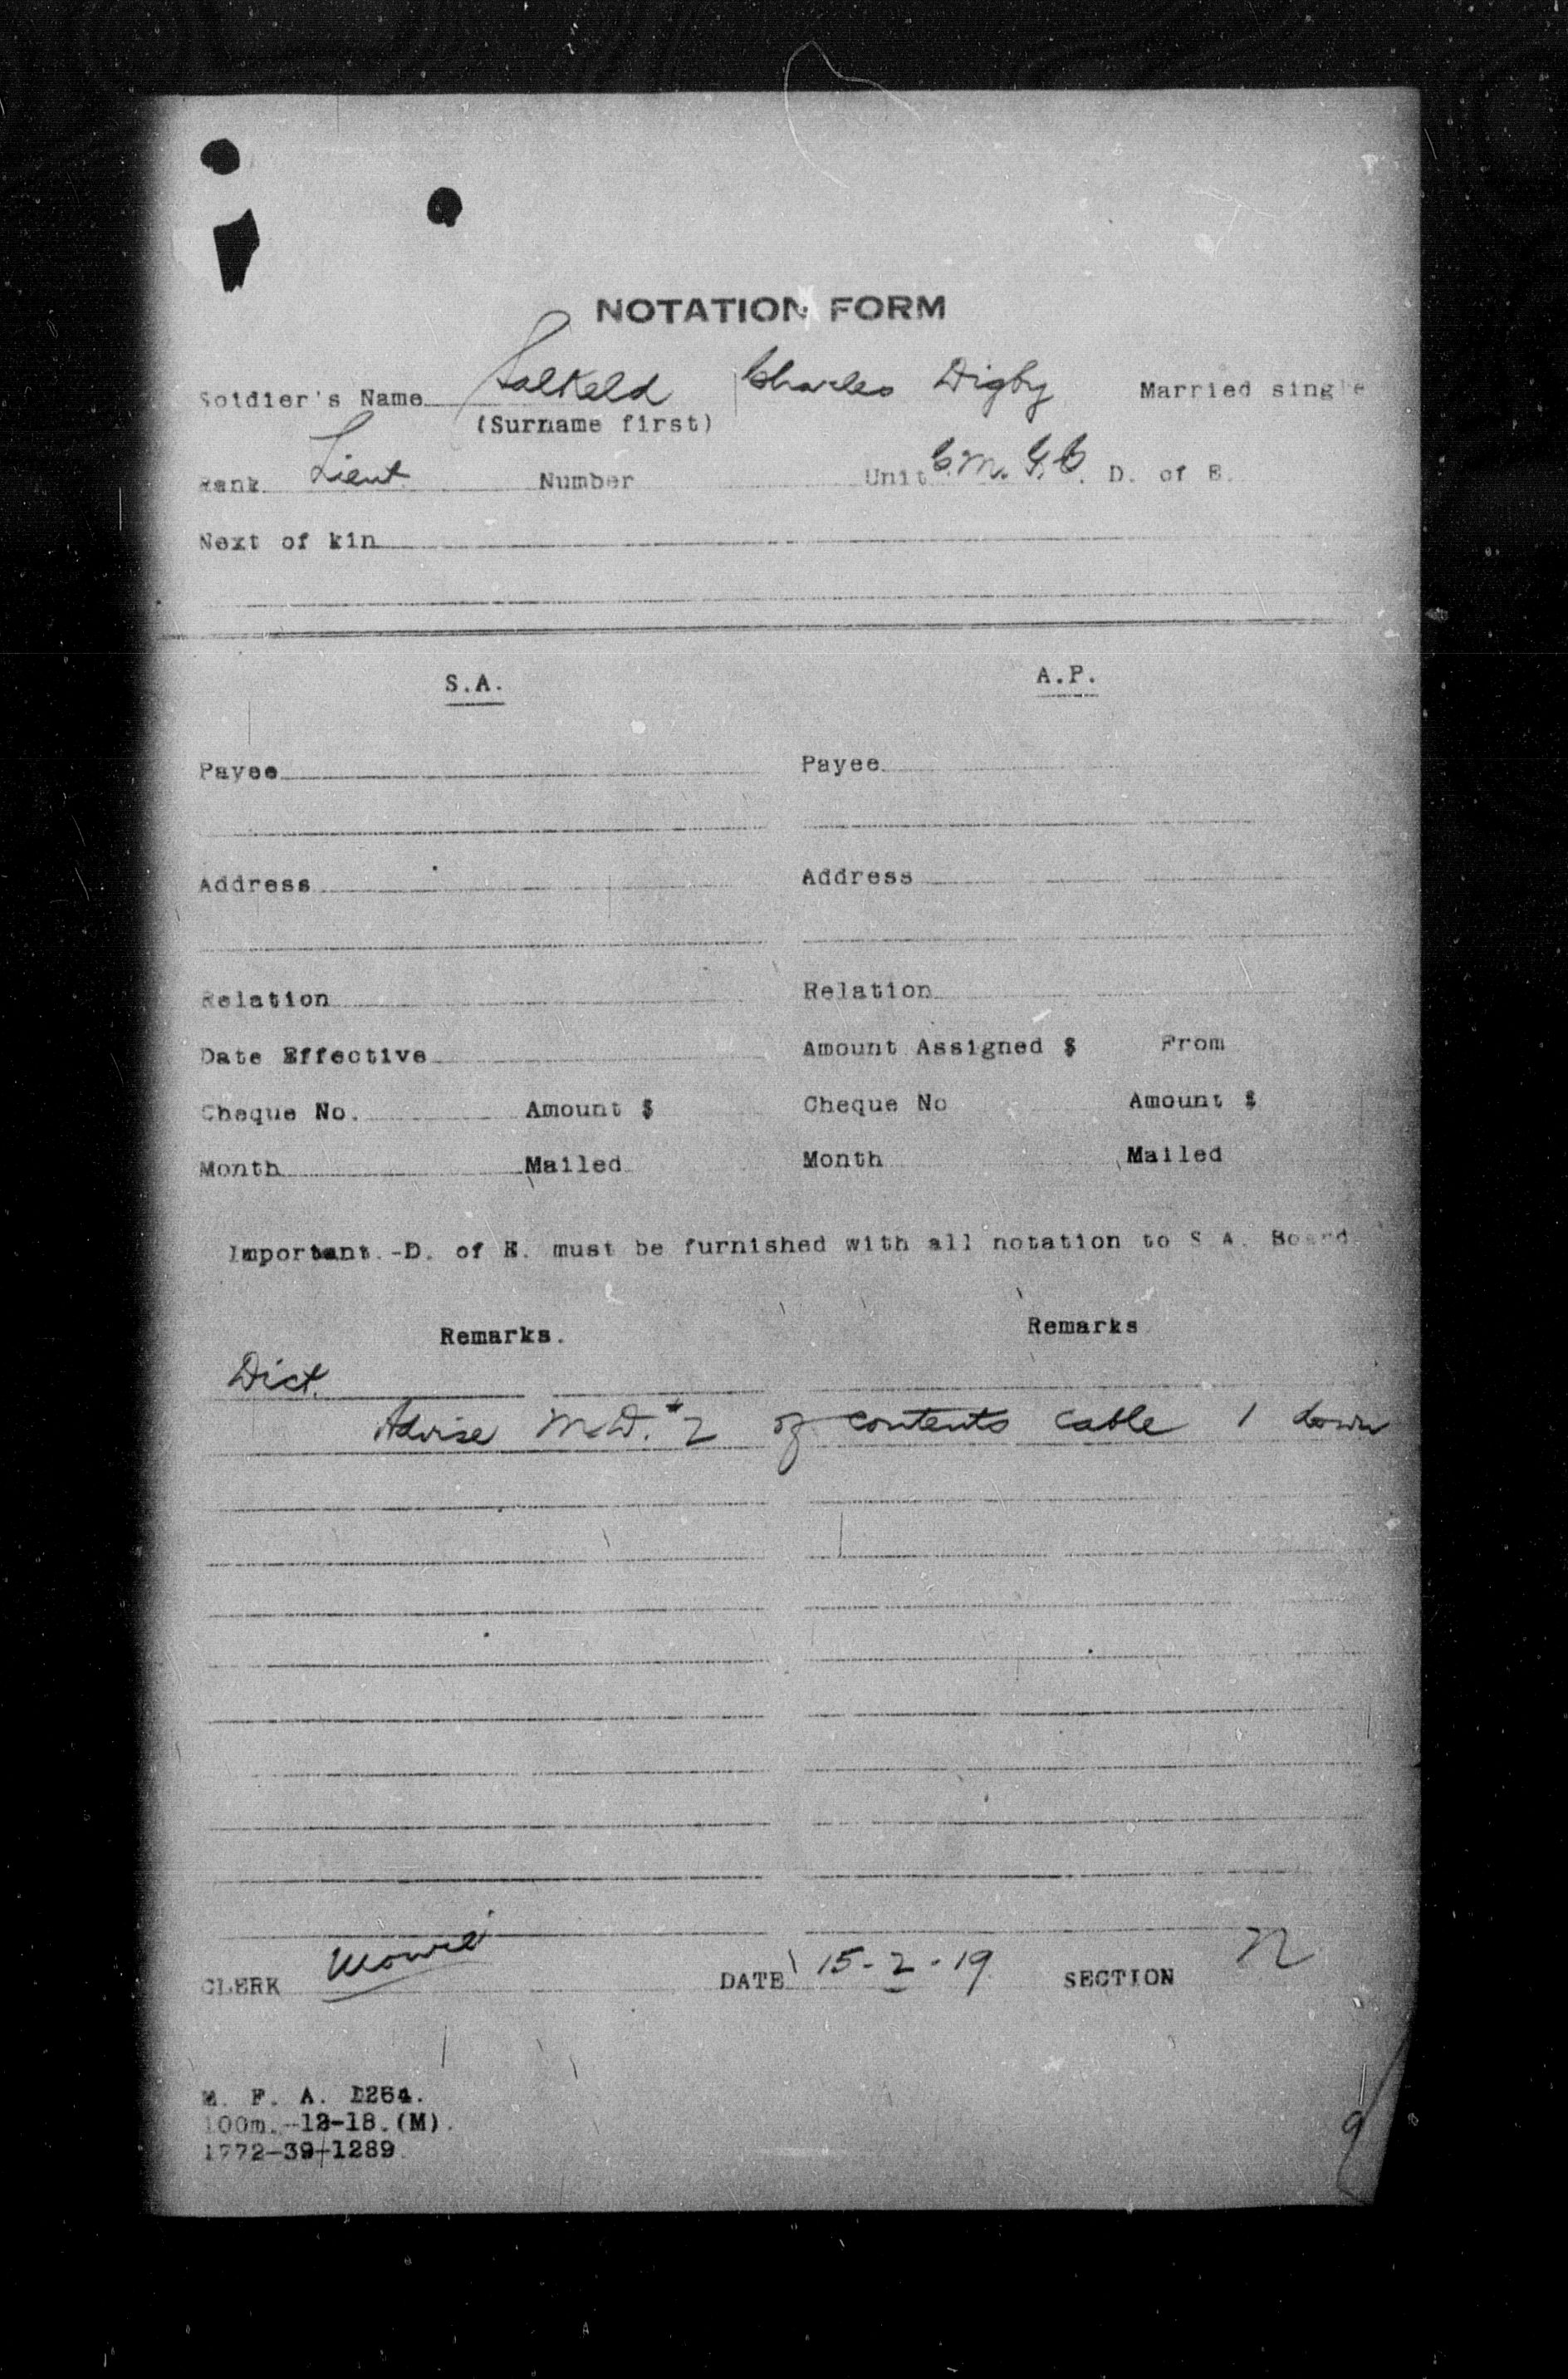 NOTATION FORM
Soldier's Name Salkeld Charles Digby Married single
(Surname first)
Rank Lieut Number Unit C.M.G.C. D. of E.
Next of kin
S.A. A.P.
Payee Payee
Address Address
Relation Relation
Date Effective Amount Assigned $ From
Cheque No. Amount $ Cheque No Amount $
Month Mailed Month Mailed
Important.-D. of E. must be furnished with all notation to S A. Board
Remarks. Remarks
Dict.
Advise M.D. #2 of contents cable 1 down
CLERK DATE 15-2-19 SECTION n
M. F. A. 1264.
100m.-12-18.(M).
1772-39-1289
9